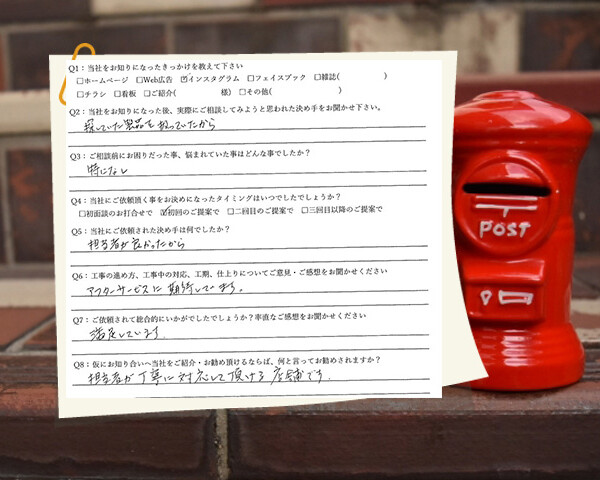 Q1：当社をお知りになったきっかけを教えて下さい
□ホームページ □Web広告 ☑インスタグラム □フェイスブック □雑誌( )
□チラシ □看板 □ご紹介( 様) □その他( )
Q2：当社をお知りになった後、実際にご相談してみようと思われた決め手をお聞かせ下さい。
探していた製品を扱っていたから
Q3：ご相談前にお困りだった事、悩まれていた事はどんな事でしたか？
特になし
Q4：当社にご依頼頂く事をお決めになったタイミングはいつでしたでしょうか？
□初面談のお打合せで ☑初回のご提案で □二回目のご提案で □三回目以降のご提案で
Q5：当社にご依頼された決め手は何でしたか？
担当者が良かったから
Q6：工事の進め方、工事中の対応、工期、仕上りについてご意見・ご感想をお聞かせください
アフターサービスに期待しています。
Q7：ご依頼されて総合的にいかがでしたでしょうか？率直なご感想をお聞かせください
満足しています。
Q8：仮にお知り合いへ当社をご紹介・お勧め頂けるならば、何と言ってお勧めされますか？
担当者が丁寧に対応して頂ける店舗です。
POST